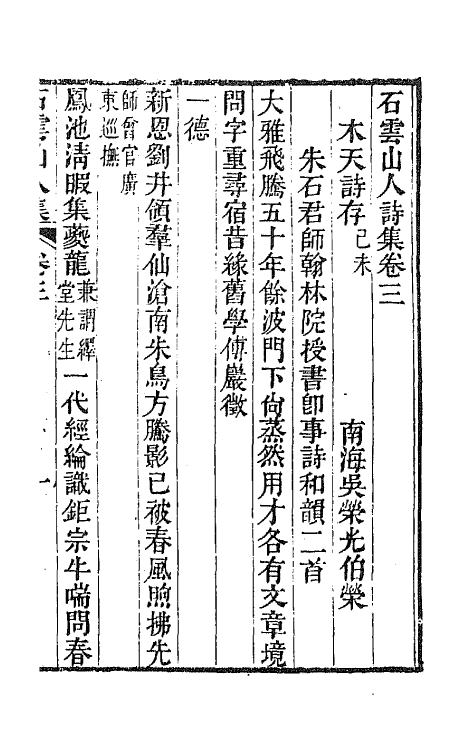 石雲山人詩集卷三
木天詩存己未
南海吳榮光伯榮
朱石君師翰林院授書卽事詩和韻二首
大雅飛騰五十年餘波門下尙蒸然用才各有文章境
問字重尋宿昔緣舊學傅巖徵
一德
新恩劉井領羣仙滄南朱鳥方騰影已被春風煦拂先
師曾官廣
東巡撫
鳳池淸暇集夔龍兼謂繹
堂先生一代經綸識鉅宗牛喘問春
石雲山人集
卷三
一